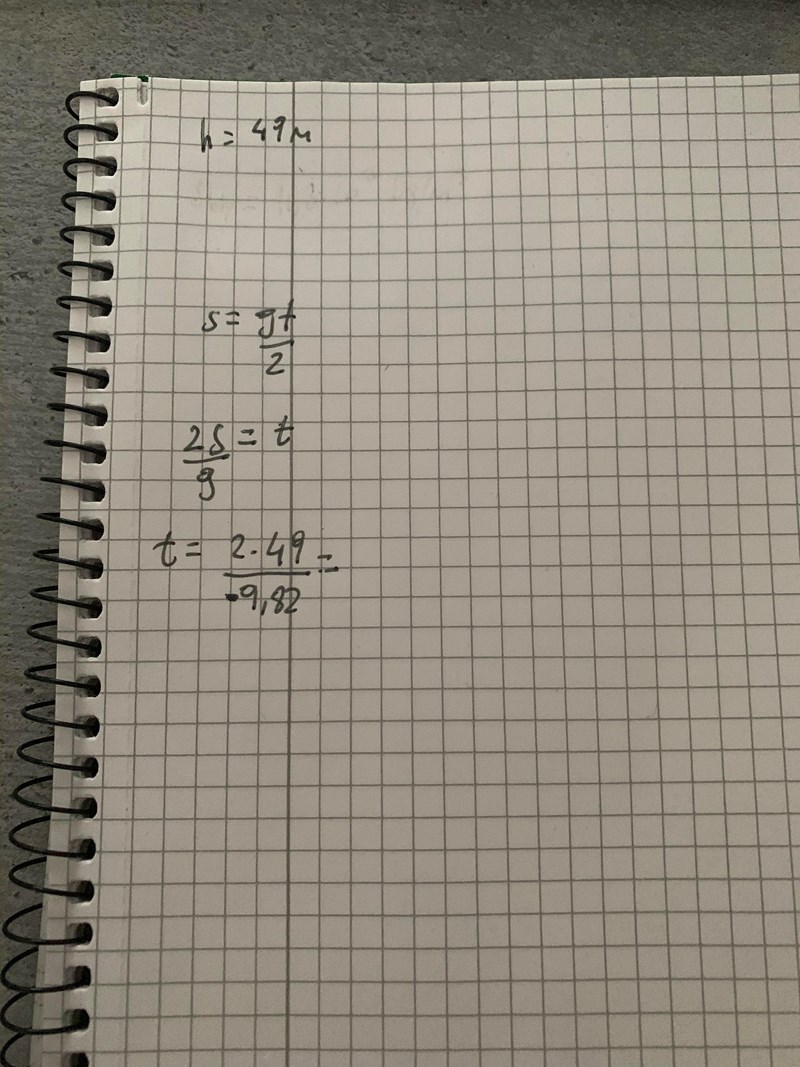 h = 49 м
s = gt/2
2s/g = t
t = 2·49/-9,82 =